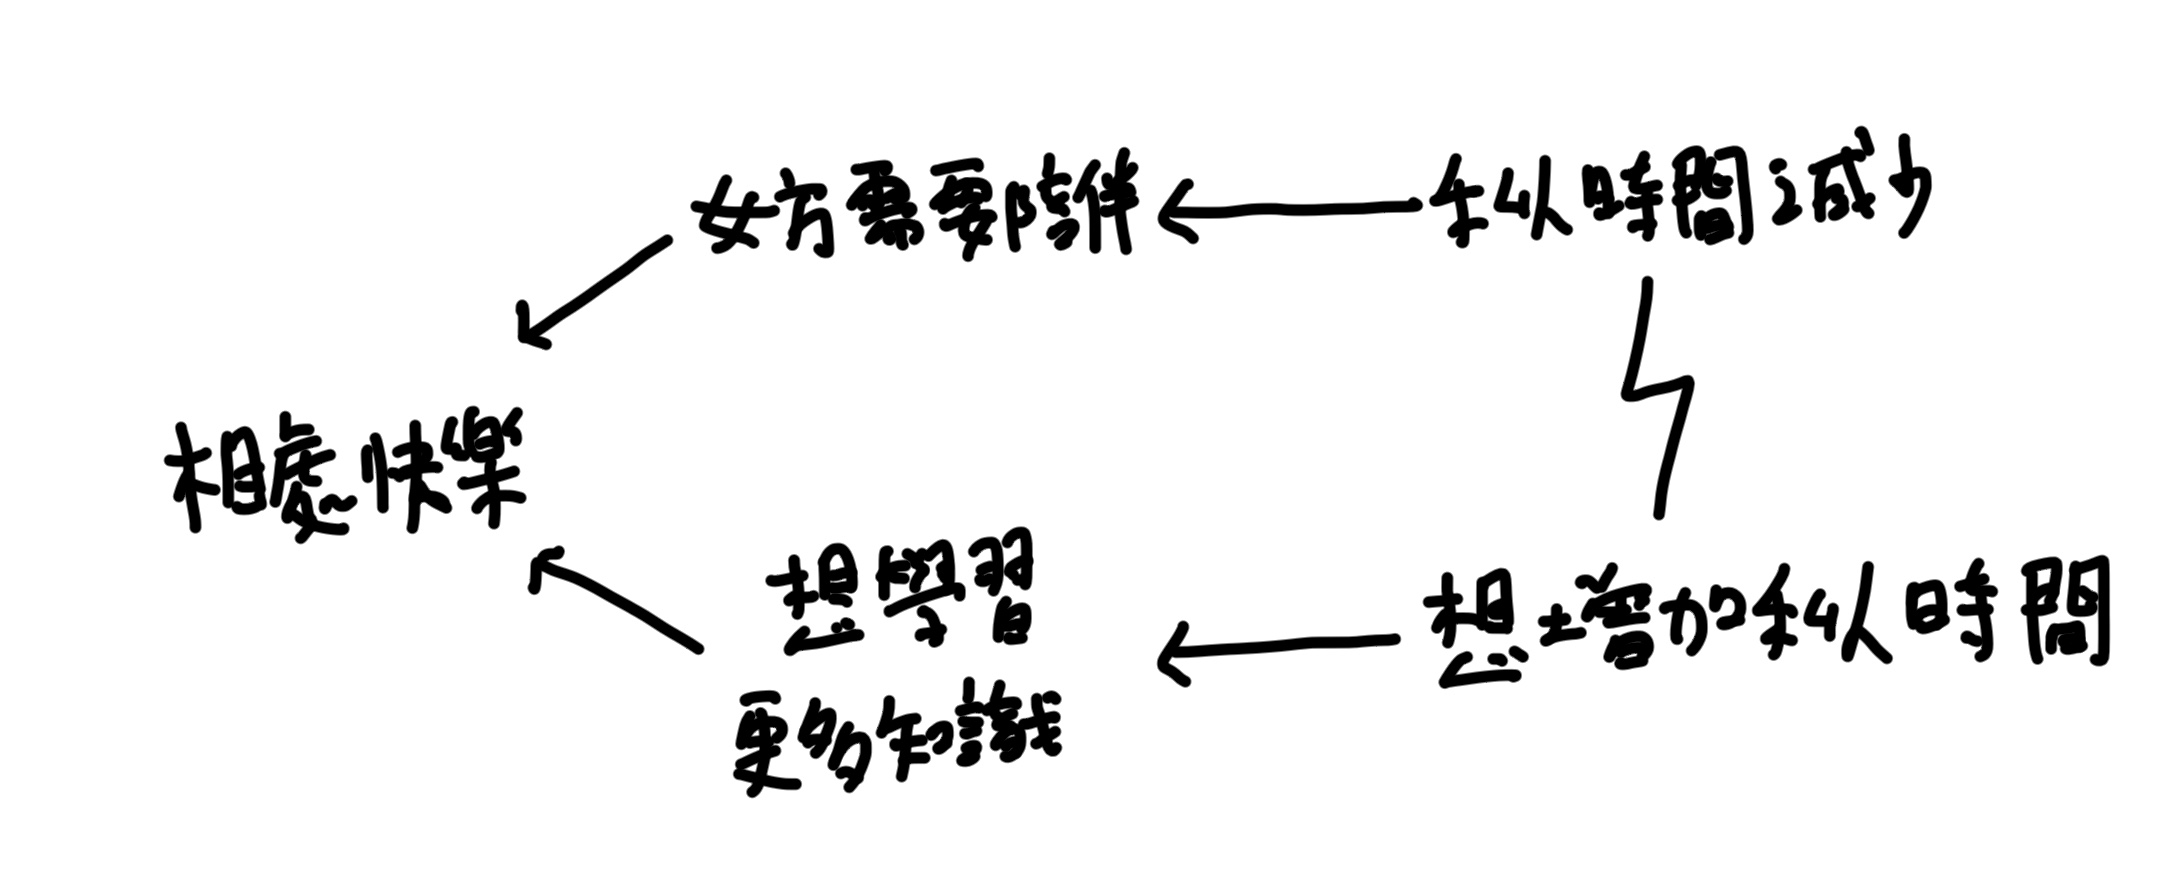 女方需要陪伴
私時間減少
相處快樂
想學習
更多知識
想增加私時間